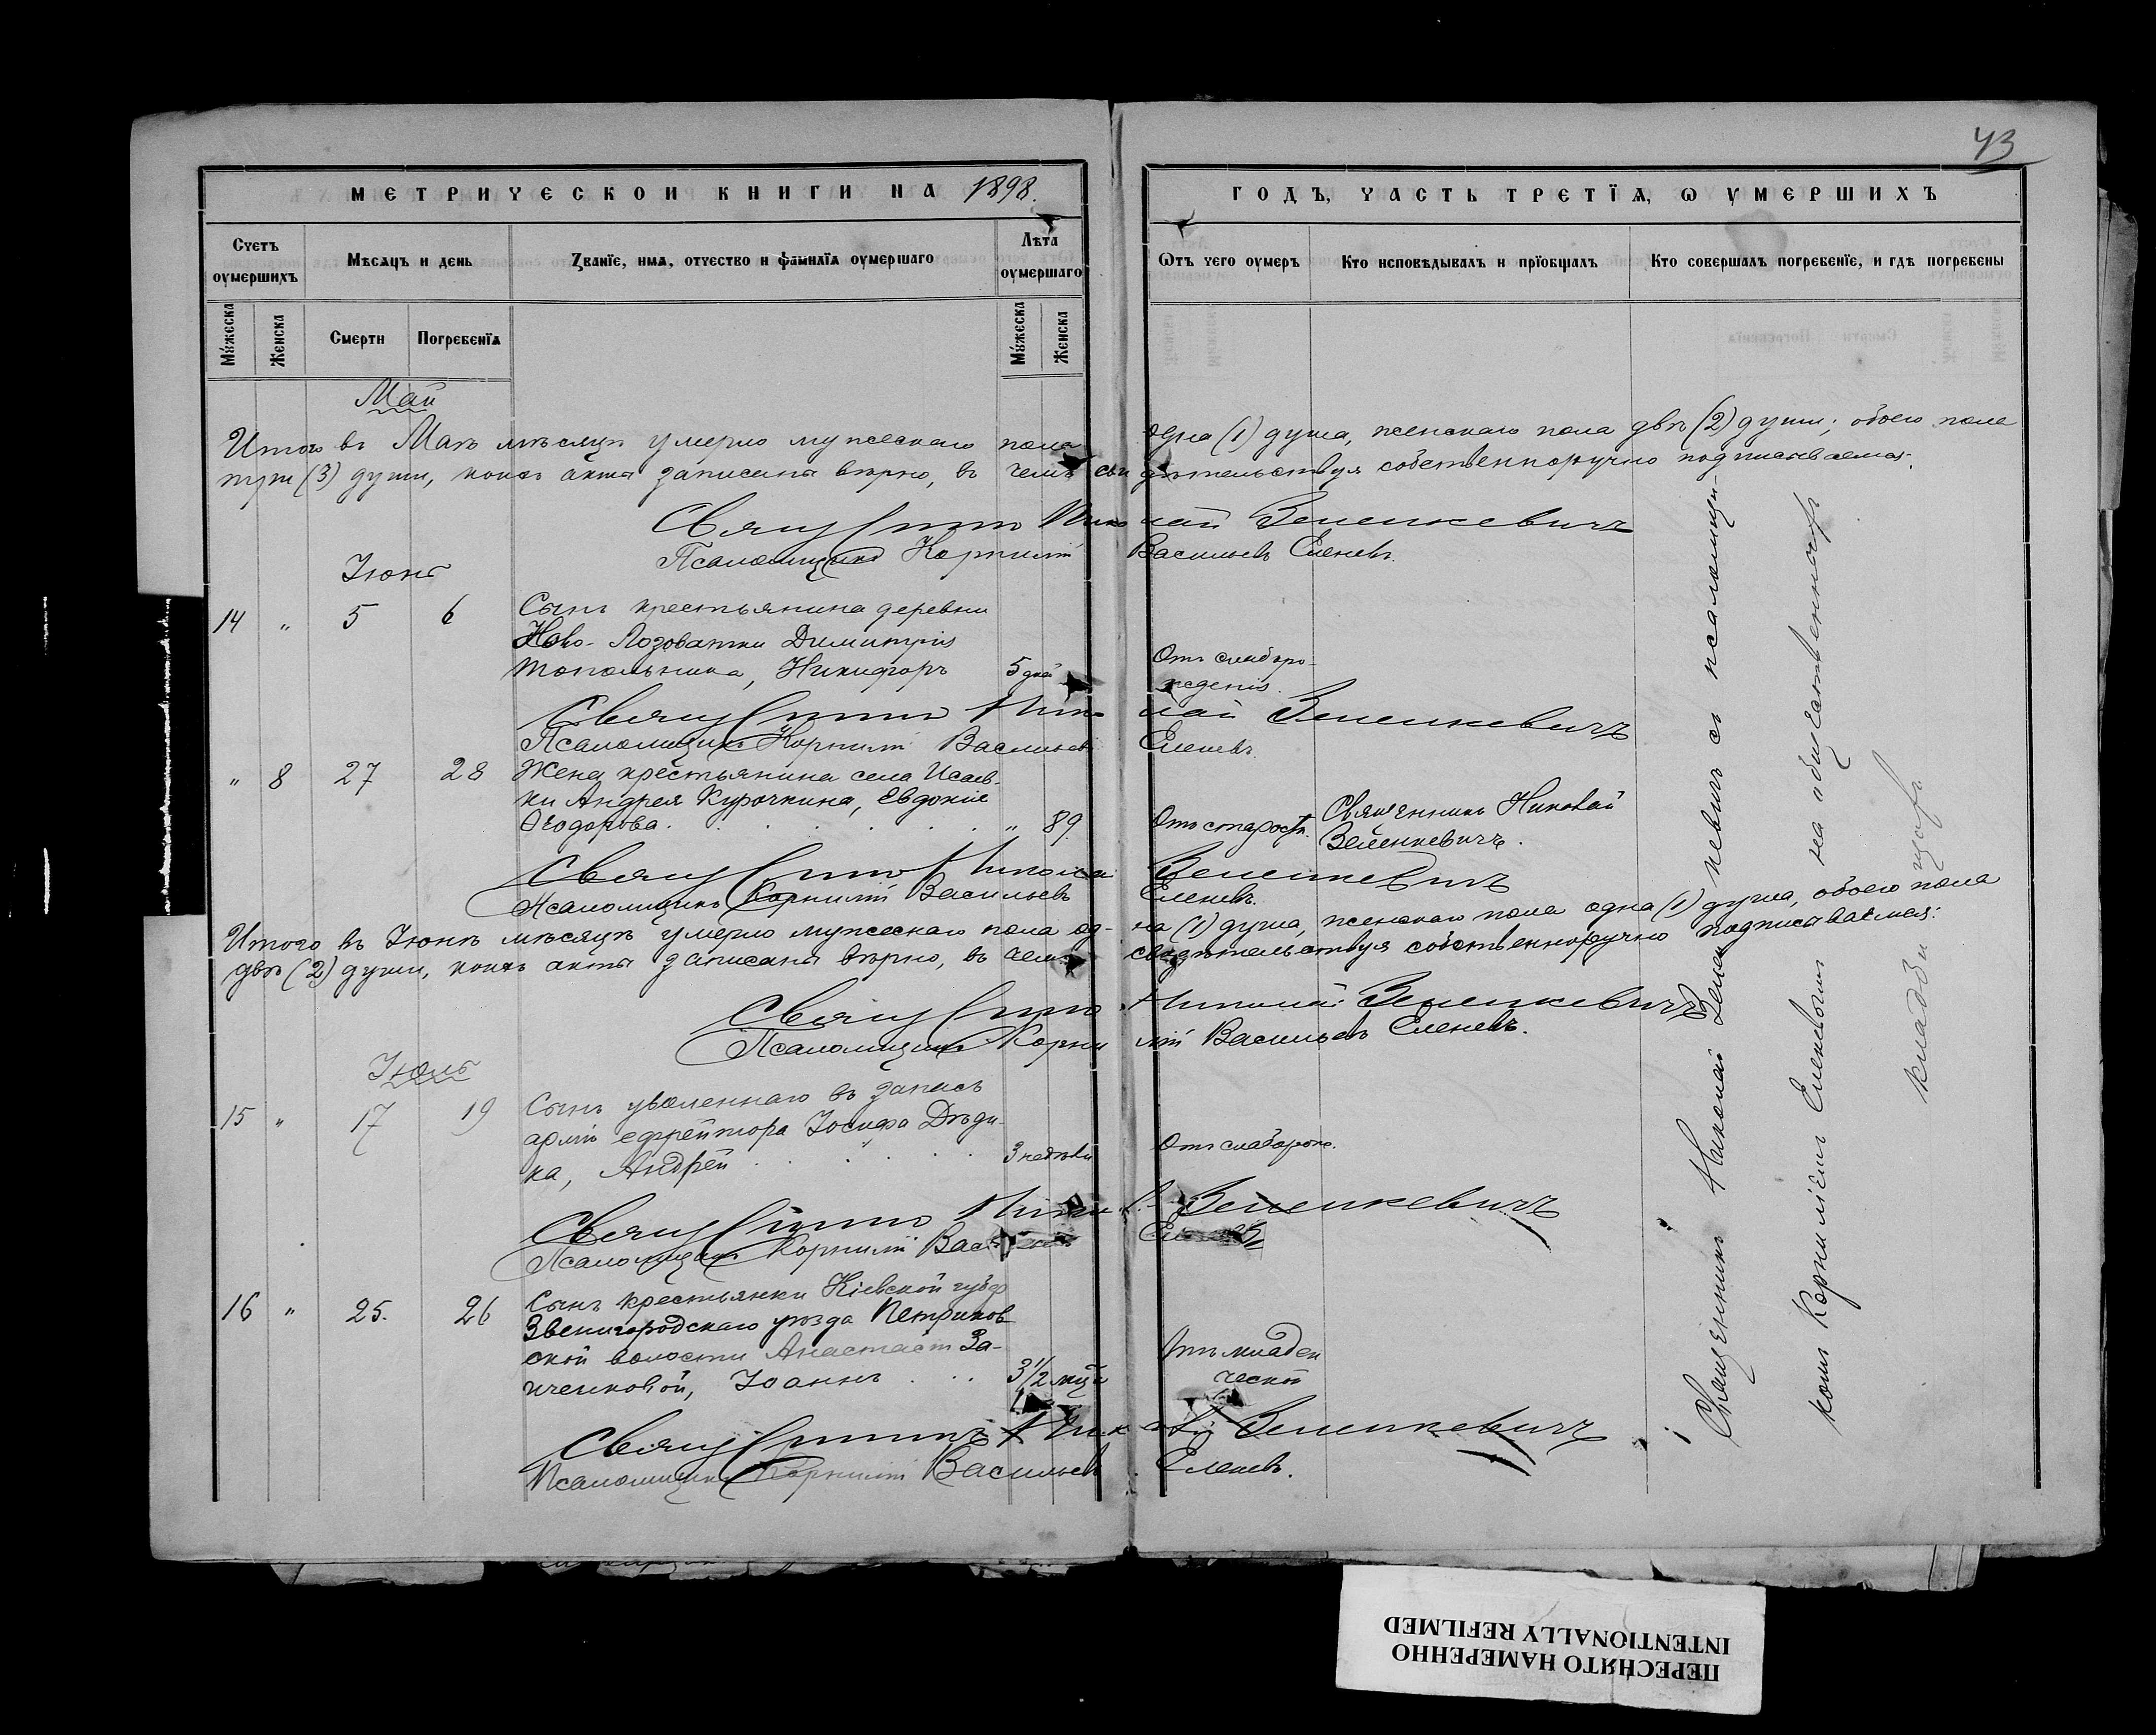 43
МЕТРИЧЕСКОЙ КНИГИ НА 1898.
ГОДЪ, ЧАСТЬ ТРЕТЇѦ, Ѡ УМЕРШИХЪ
Счетъ оумершихъ
Мѣсяцъ и день
Званїе, имѧ, отчество и фамилїѧ оумершаго
Лѣта оумершаго
Ѿтъ чего оумеръ
Кто исповѣдывалъ и прїобщалъ
Кто совершалъ погребенїе, и гдѣ погребены
Мꙋжеска
Женска
Смерти
Погребенїѧ
Мꙋжеска
Женска
Май
Итого въ Маѣ мѣсяцѣ умерло мужескаго пола одна (1) душа, женскаго пола двѣ (2) души; обоего пола
три (3) души, коихъ акты записаны вѣрно, въ чемъ свидѣтельствуя собственноручно подписываемся:
Священникъ Николай Зеленкевичъ
Псаломщикъ Корнилій Васильевъ Еленевъ.
Іюнь
14 " 5 6 Сынъ крестьянина деревни
Ново-Лозоватки Димитрія
Топольника, Никифоръ 5 дней Отъ слаборо-
жденія.
Священникъ Николай Зеленкевичъ
Псаломщикъ Корнилій Васильевъ Еленевъ
" 8 27 28 Жена крестьянина села Исаев-
ки Андрея Курочкина, Евдокія
Ѳеодорова. " 89 Отъ старости. Священникъ Николай
Зеленкевичъ.
Священникъ Николай Зеленкевичъ
Псаломщикъ Корнилій Васильевъ Еленевъ.
Итого въ Іюнѣ мѣсяцѣ умерло мужескаго пола од-на (1) душа, женскаго пола одна (1) душа, обоего пола
двѣ (2) души, коихъ акты записаны вѣрно, въ чемъ свидѣтельствуя собственноручно подписываемся:
Священникъ Николай Зеленкевичъ
Псаломщикъ Корнилій Васильевъ Еленевъ.
Іюль
15 " 17 19 Сынъ уволеннаго въ запасъ
арміи ефрейтора Іосифа Дѣди-
ка, Андрей 3 недѣли Отъ слаборожд.
Священникъ Зеленкевичъ
Псаломщикъ Корнилій
16 " 25. 26 Сынъ крестьянки Кіевской губер
Звенигородскаго уѣзда Петриков
ской волости Анастасіи За-
иченковой, Іоаннъ 3 1/2 мѣс Отъ младен
ческой
Священникъ Зеленкевичъ
Псаломщикъ Корнилій Васильевъ Еленевъ.
Священникъ Николай Зеленкевичъ съ псаломщи-
комъ Корниліемъ Еленевымъ на общественномъ
кладбищѣ.
ПЕРЕСНЯТО НАМЕРЕННО
INTENTIONALLY REFILMED